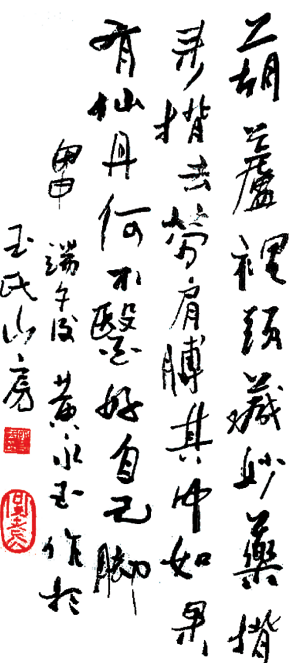 葫蘆裡頭藏妙藥揹
来揹去勞肩膊其中如果
有仙丹何不醫好自己脚
甲申端午後黃永玉作於
玉氏山房